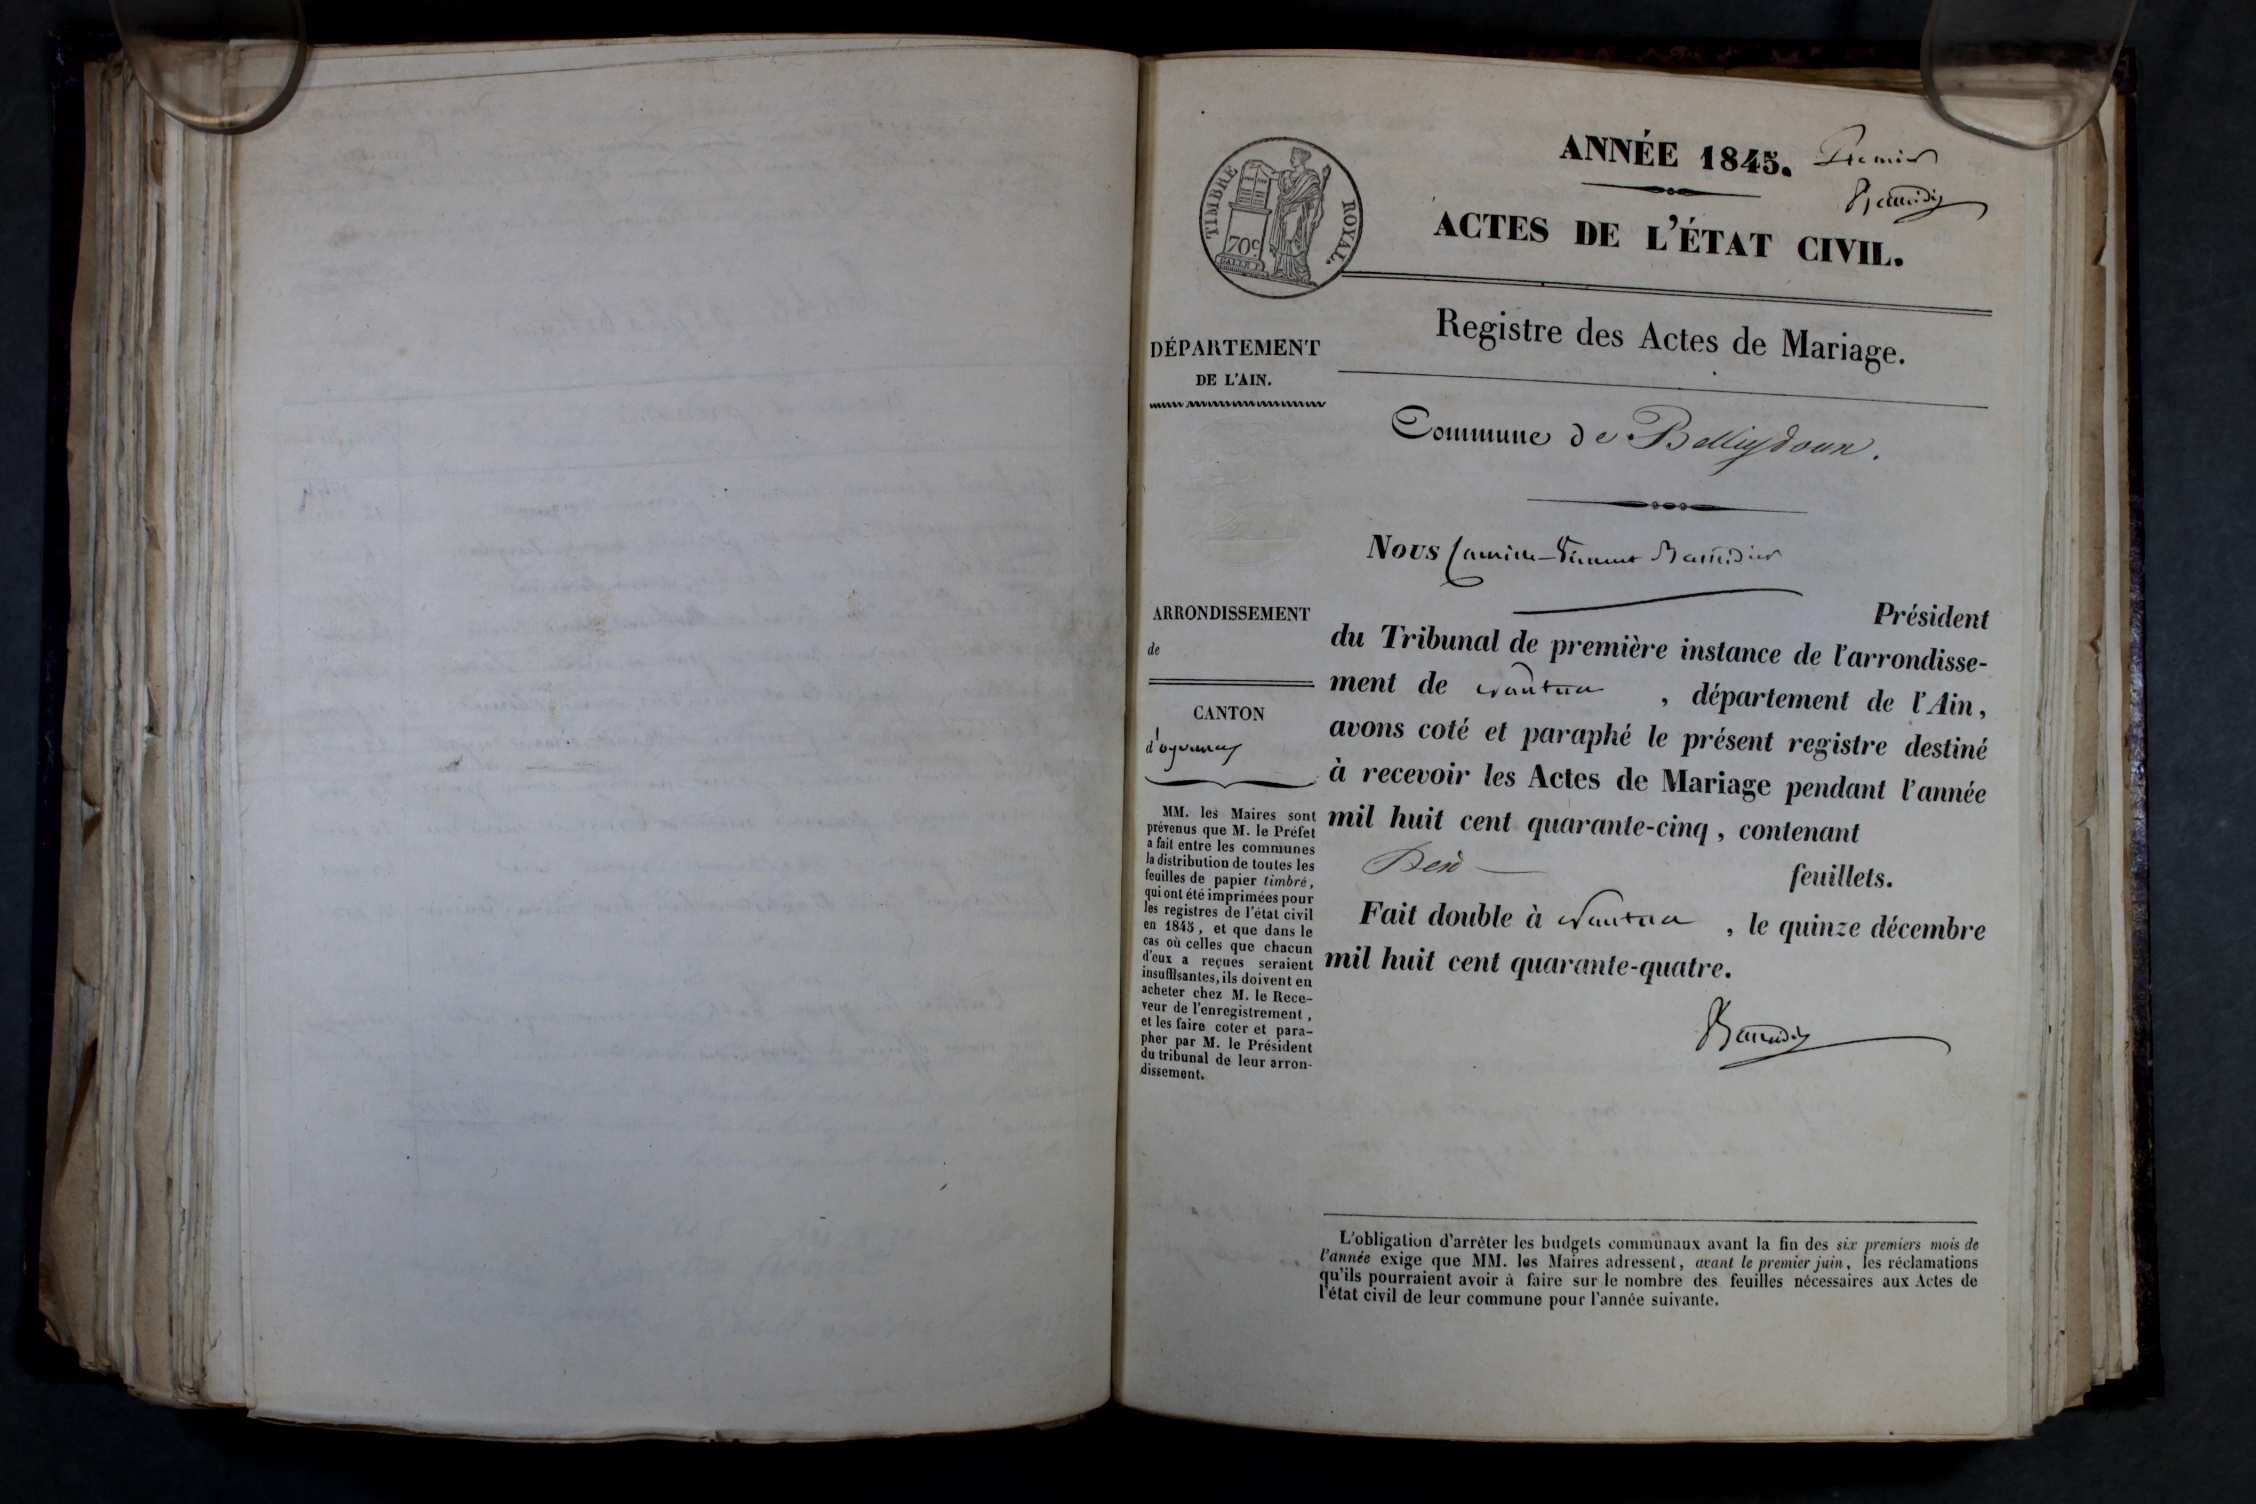 ANNÉE 1845. Premier
TIMBRE ROYAL.
70c
ACTES DE L'ÉTAT CIVIL.
Registre des Actes de Mariage.
DÉPARTEMENT
DE L'AIN.
Commune de Bellydoux.
Nous Camille-Vincent
ARRONDISSEMENT
de
CANTON
d'oyonnax
MM. les Maires sont
prévenus que M. le Préfet
a fait entre les communes
la distribution de toutes les
feuilles de papier timbré,
qui ont été imprimées pour
les registres de l'état civil
en 1845, et que dans le
cas où celles que chacun
d'eux a reçues seraient
insuffisantes, ils doivent en
acheter chez M. le Rece-
veur de l'enregistrement,
et les faire coter et para-
pher par M. le Président
du tribunal de leur arron-
dissement.
Président
du Tribunal de première instance de l'arrondisse-
ment de Nantua, département de l'Ain,
avons coté et paraphé le présent registre destiné
à recevoir les Actes de Mariage pendant l'année
mil huit cent quarante-cinq, contenant
feuillets.
Fait double à Nantua, le quinze décembre
mil huit cent quarante-quatre.
L'obligation d'arrêter les budgets communaux avant la fin des six premiers mois de
l'année exige que MM. les Maires adressent, avant le premier juin, les réclamations
qu'ils pourraient avoir à faire sur le nombre des feuilles nécessaires aux Actes de
l'état civil de leur commune pour l'année suivante.